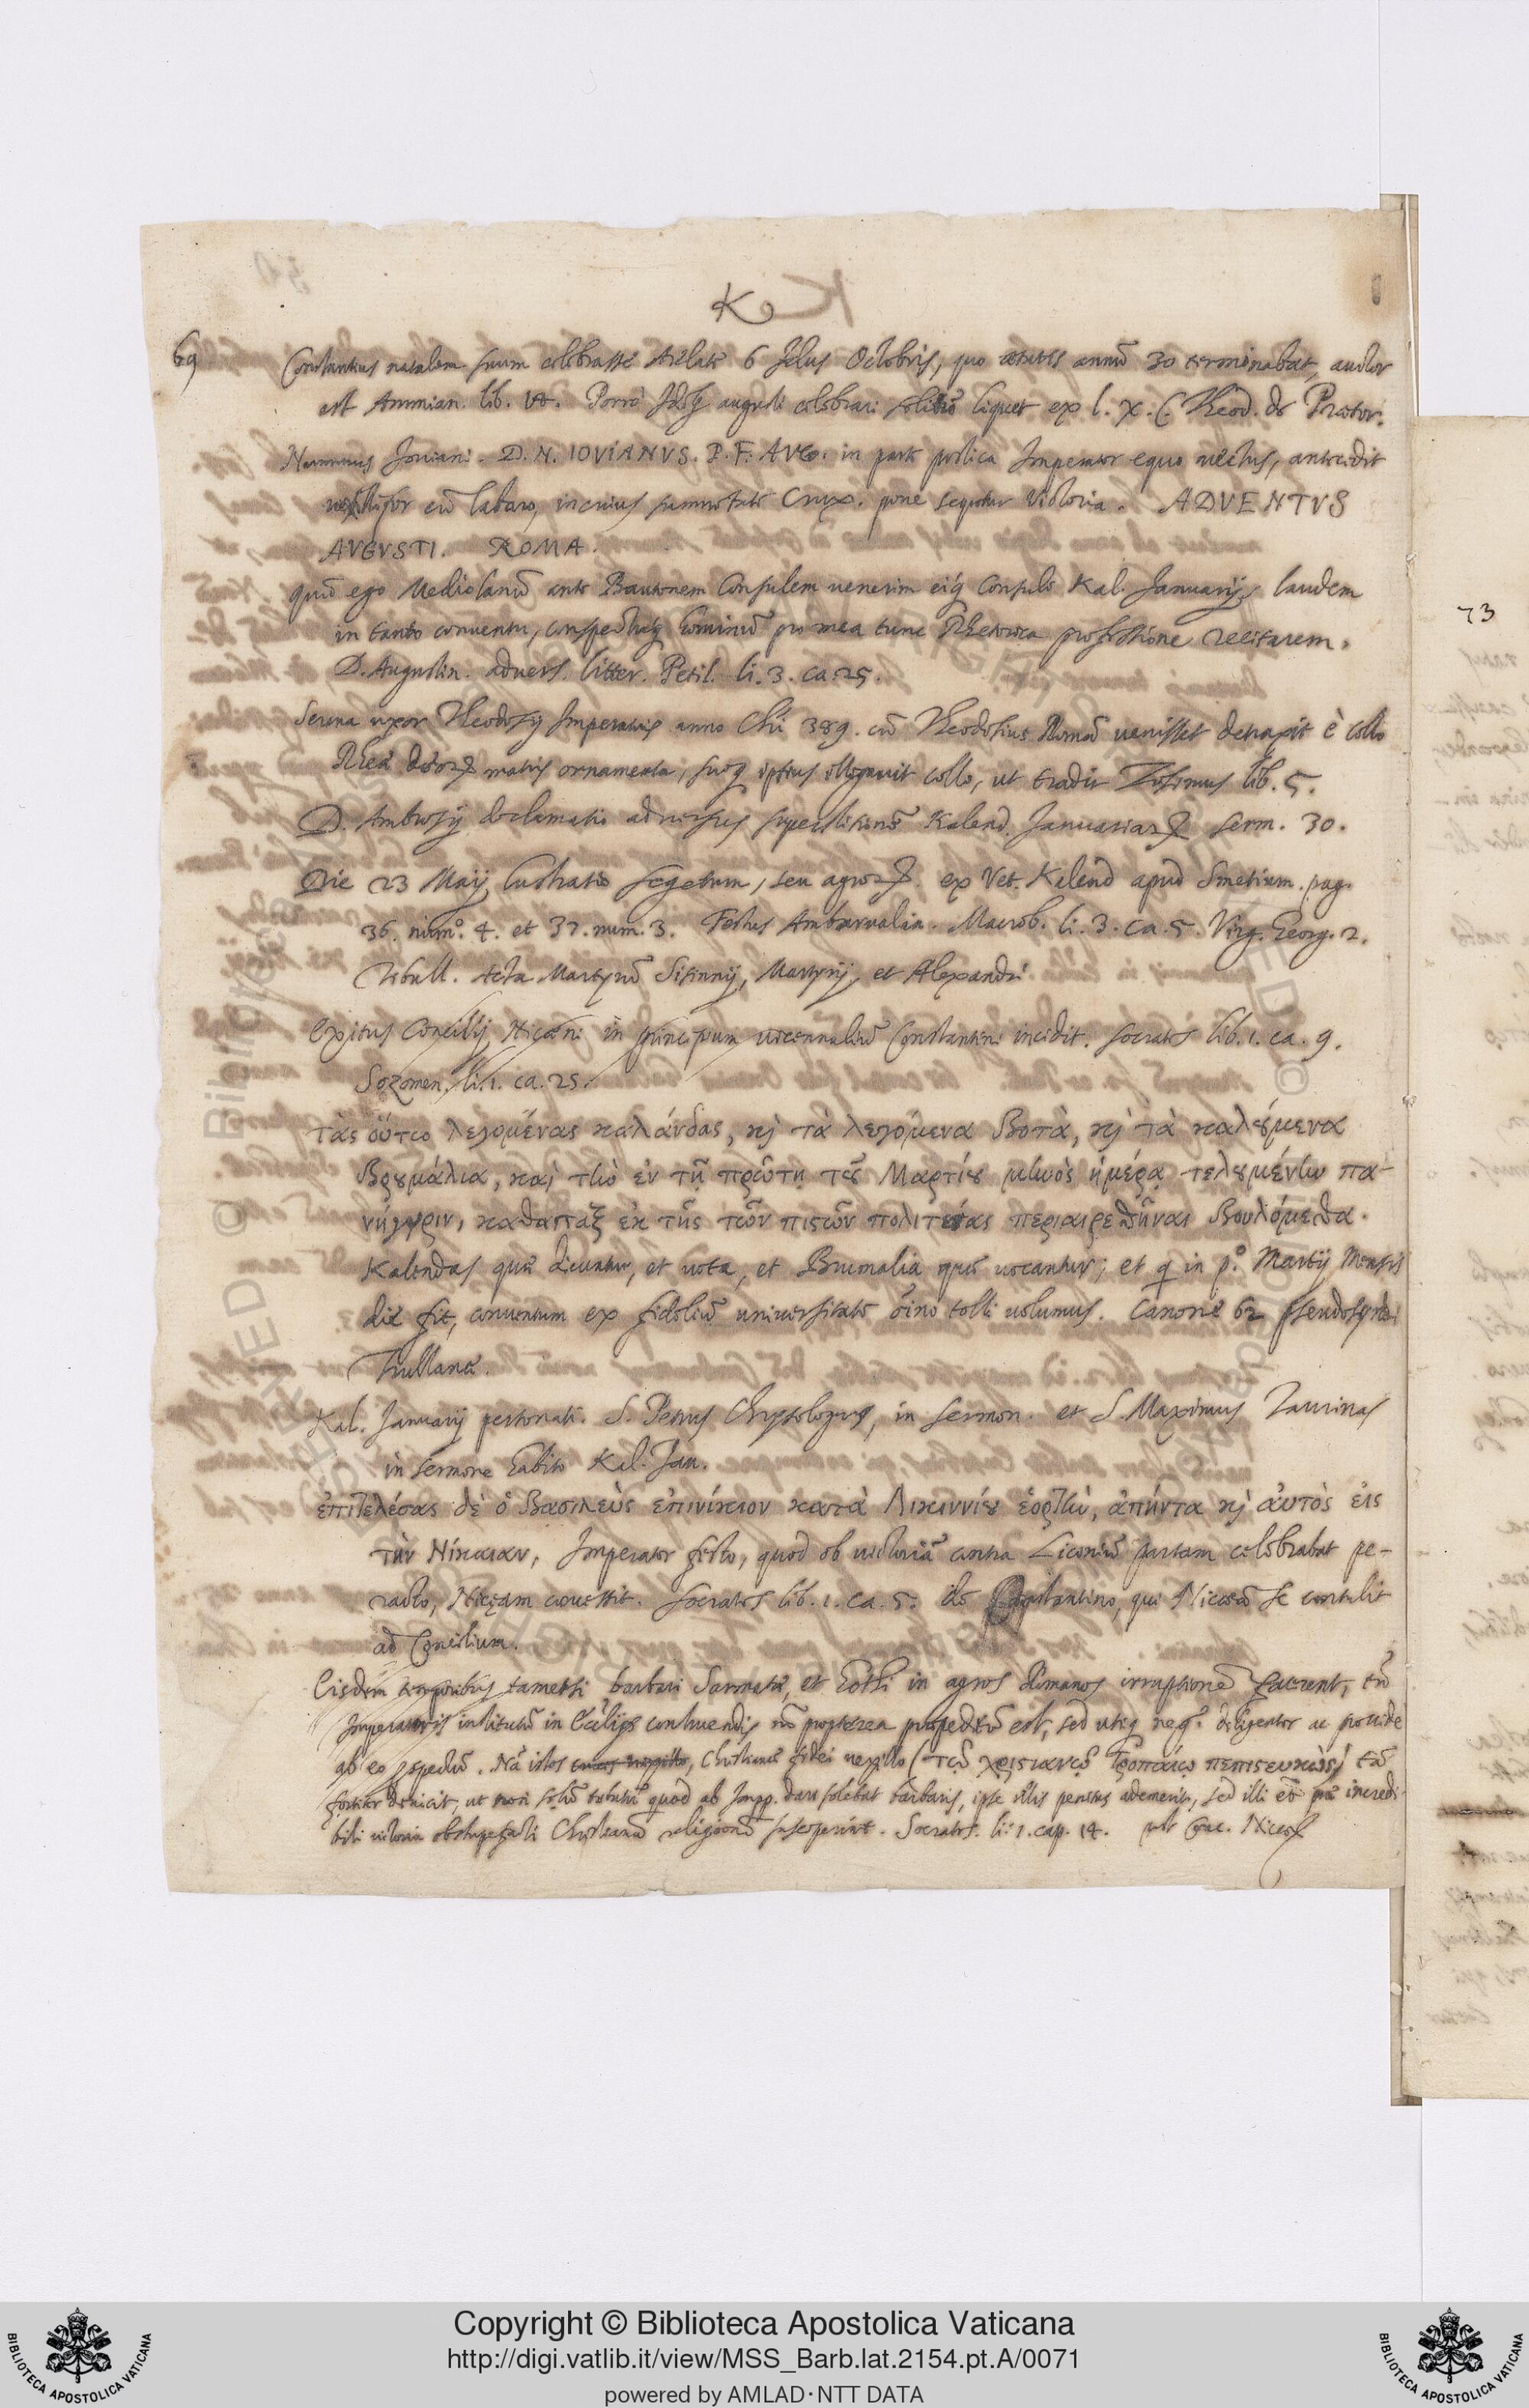 K
69
Constantius natalem suum celebrasse Arelate 6 Idus Octobris, quo ætatis annũ 30 terminabat, auctor
est Ammian. lib. Porrò augusti celebrari solitũ liquet ex l. X. C. Theod. de Prætor.
Nummus Joviani. D. N. IOVIANVS. P. F. AVG. in parte postica Imperator equo vectus, antecedit
cũ labaro, in cuius summitate Crux. pone sequitur Victoria. ADVENTVS
AVGVSTI. ROMA.
quũ ego Mediolanũ ante Bautonem Consulem venerim eiq Consuli Kal. Januarijs laudem
in tanto conventu, conspectuq hominũ pro mea tunc Rhetorica professione recitarem.
D. Augustin. advers. litter. Petil. li. 3. ca. 25.
Serena uxor Theodosij Imperatoris anno Chri 389. cũ Theodosius Romã venisset detraxit è collo
Rheæ matris ornamenta, suoq ipsius collo, ut tradit Zosimus lib. 5.
D. Ambrosij declamatio adversus superstitionẽ Kalend. Januariar. serm. 30.
Die 23 Maij lustratio segetum, seu agror. ex Vet. Kalend apud Smetium. pag.
36. num.º 4. et 37. num. 3. Festus Ambarvalia. Macrob. li. 3. ca. 5. Virg. Georg. 2.
Tibull. Acta Martyrũ Sisinnij, Martyrij, et Alexandri
Exitus Concilij Nicæni in principium vicennaliũ Constantini incidit. Socrates lib. 1. ca. 9.
Sozomen. li. 1. ca. 25.
τὰς οὕτω λεγομένας καλάνδας, κὶ τὰ λεγόμενα βοτὰ, κὶ τὰ καλούμενα
βρουμάλια, καὶ τὴν ἐν τῇ πρώτῃ τοῦ Μαρτίου μηνὸς ἡμέρᾳ τελουμένην πα-
νήγυριν, καθάπαξ ἐκ τῆς τῶν πιστῶν πολιτείας περιαιρεθῆναι βουλόμεθα.
Kalendas quæ dicuntur, et vota, et Brumalia quæ vocantur; et q in p.º Martij Mensis
die fit, conventum ex fideliũ universitate õino tolli volumus. Canone 62 pseudosynodi
Trullanæ.
Kal. Januarij personati. S. Petrus Chrysologus, in sermon. et S. Maximus Taurinas
in sermone habito Kal. Jan.
ἐπιτελέσας δὲ ὁ Βασιλεὺς ἐπινίκιον κατὰ Λικιννίου ἑορτὴν, ἀπήντα κὶ αὐτὸς εἰς
τὴν Νίκαιαν, Imperator festo, quod ob victoriã contra Liciniũ partam celebrabat pe-
racto, Nicęam concessit. Socrates lib. 1. ca. 5. de Constantino, qui Nicæã se contulit
ad Concilium.
Eisdem temporibus tametsi barbari Sarmatæ, et Gothi in agros Romanos irruptionẽ facerent, tñ
Imperatoris institutũ in Ecclijs construendis nõ propterea est, sed utiq diligenter ac provide
ab eo Nã istos Christianæ fidei vexillo (τῷ χριστιανῷ τροπαίῳ πεπιστευκὼς) tã
fortiter devicit, ut non solũ tributũ quod ab Impp. dari solebat barbaris, ipse illis penitus ademerit, sed illi incredi-
bili victoria obstupefacti Christianã religionẽ susceperint. Socrates. li. 1. cap. 14.
73
Copyright © Biblioteca Apostolica Vaticana
http://digi.vatlib.it/view/MSS_Barb.lat.2154.pt.A/0071
powered by AMLAD·NTT DATA
BIBLIOTECA APOSTOLICA VATICANA
BIBLIOTECA APOSTOLICA VATICANA